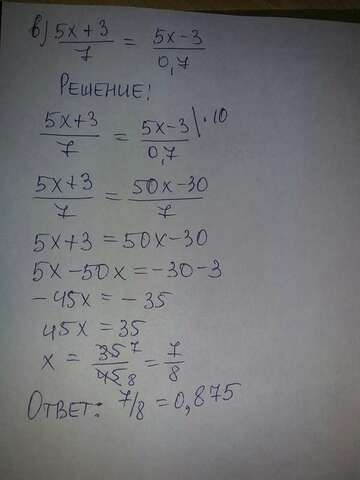 в) (5x+3)/7 = (5x-3)/0,7
РЕШЕНИЕ:
(5x+3)/7 = (5x-3)/0,7 |·10
(5x+3)/7 = (50x-30)/7
5x+3 = 50x-30
5x-50x = -30-3
-45x = -35
45x = 35
x = 35 7/45 8 = 7/8
ОТВЕТ: 7/8 = 0,875